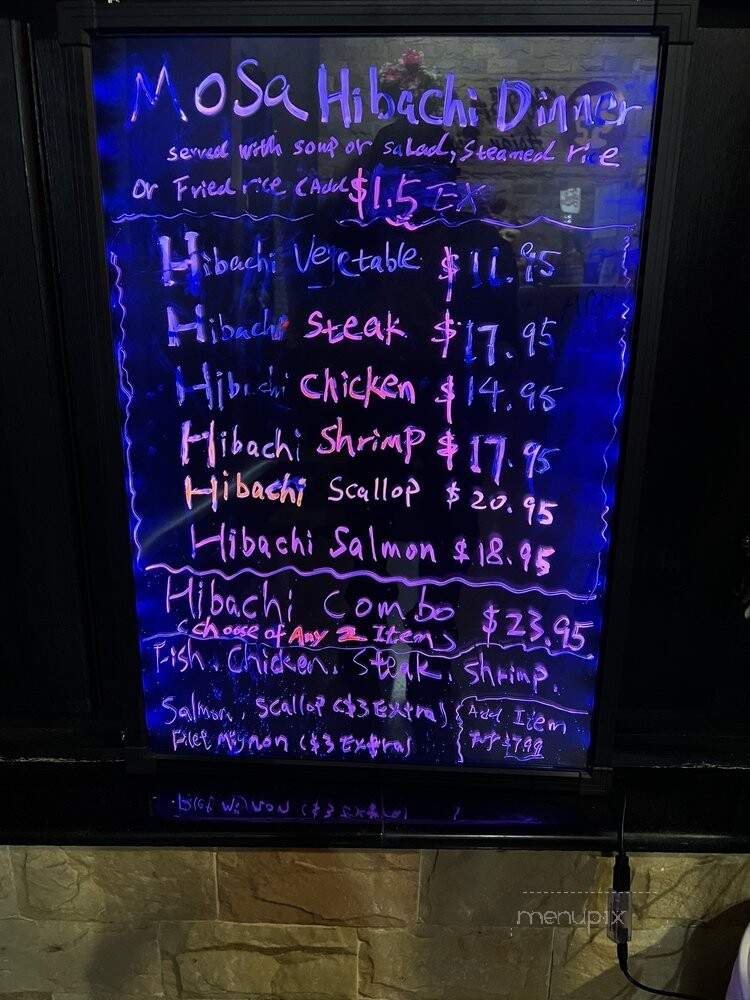 Mosa Hibachi Dinner
served with soup or salad, steamed rice
or Fried rice (Add $1.5 EX
Hibachi Vegetable $11.95
Hibachi Steak $17.95
Hibachi chicken $14.95
Hibachi Shrimp $17.95
Hibachi Scallop $20.95
Hibachi Salmon $18.95
Hibachi Combo $23.95
(choose of Any 2 Items)
Fish, Chicken, Steak, Shrimp,
Salmon, Scallop ($3 Extra)
Filet Mignon ($3 Extra)
Add Item
$7.99
menupix